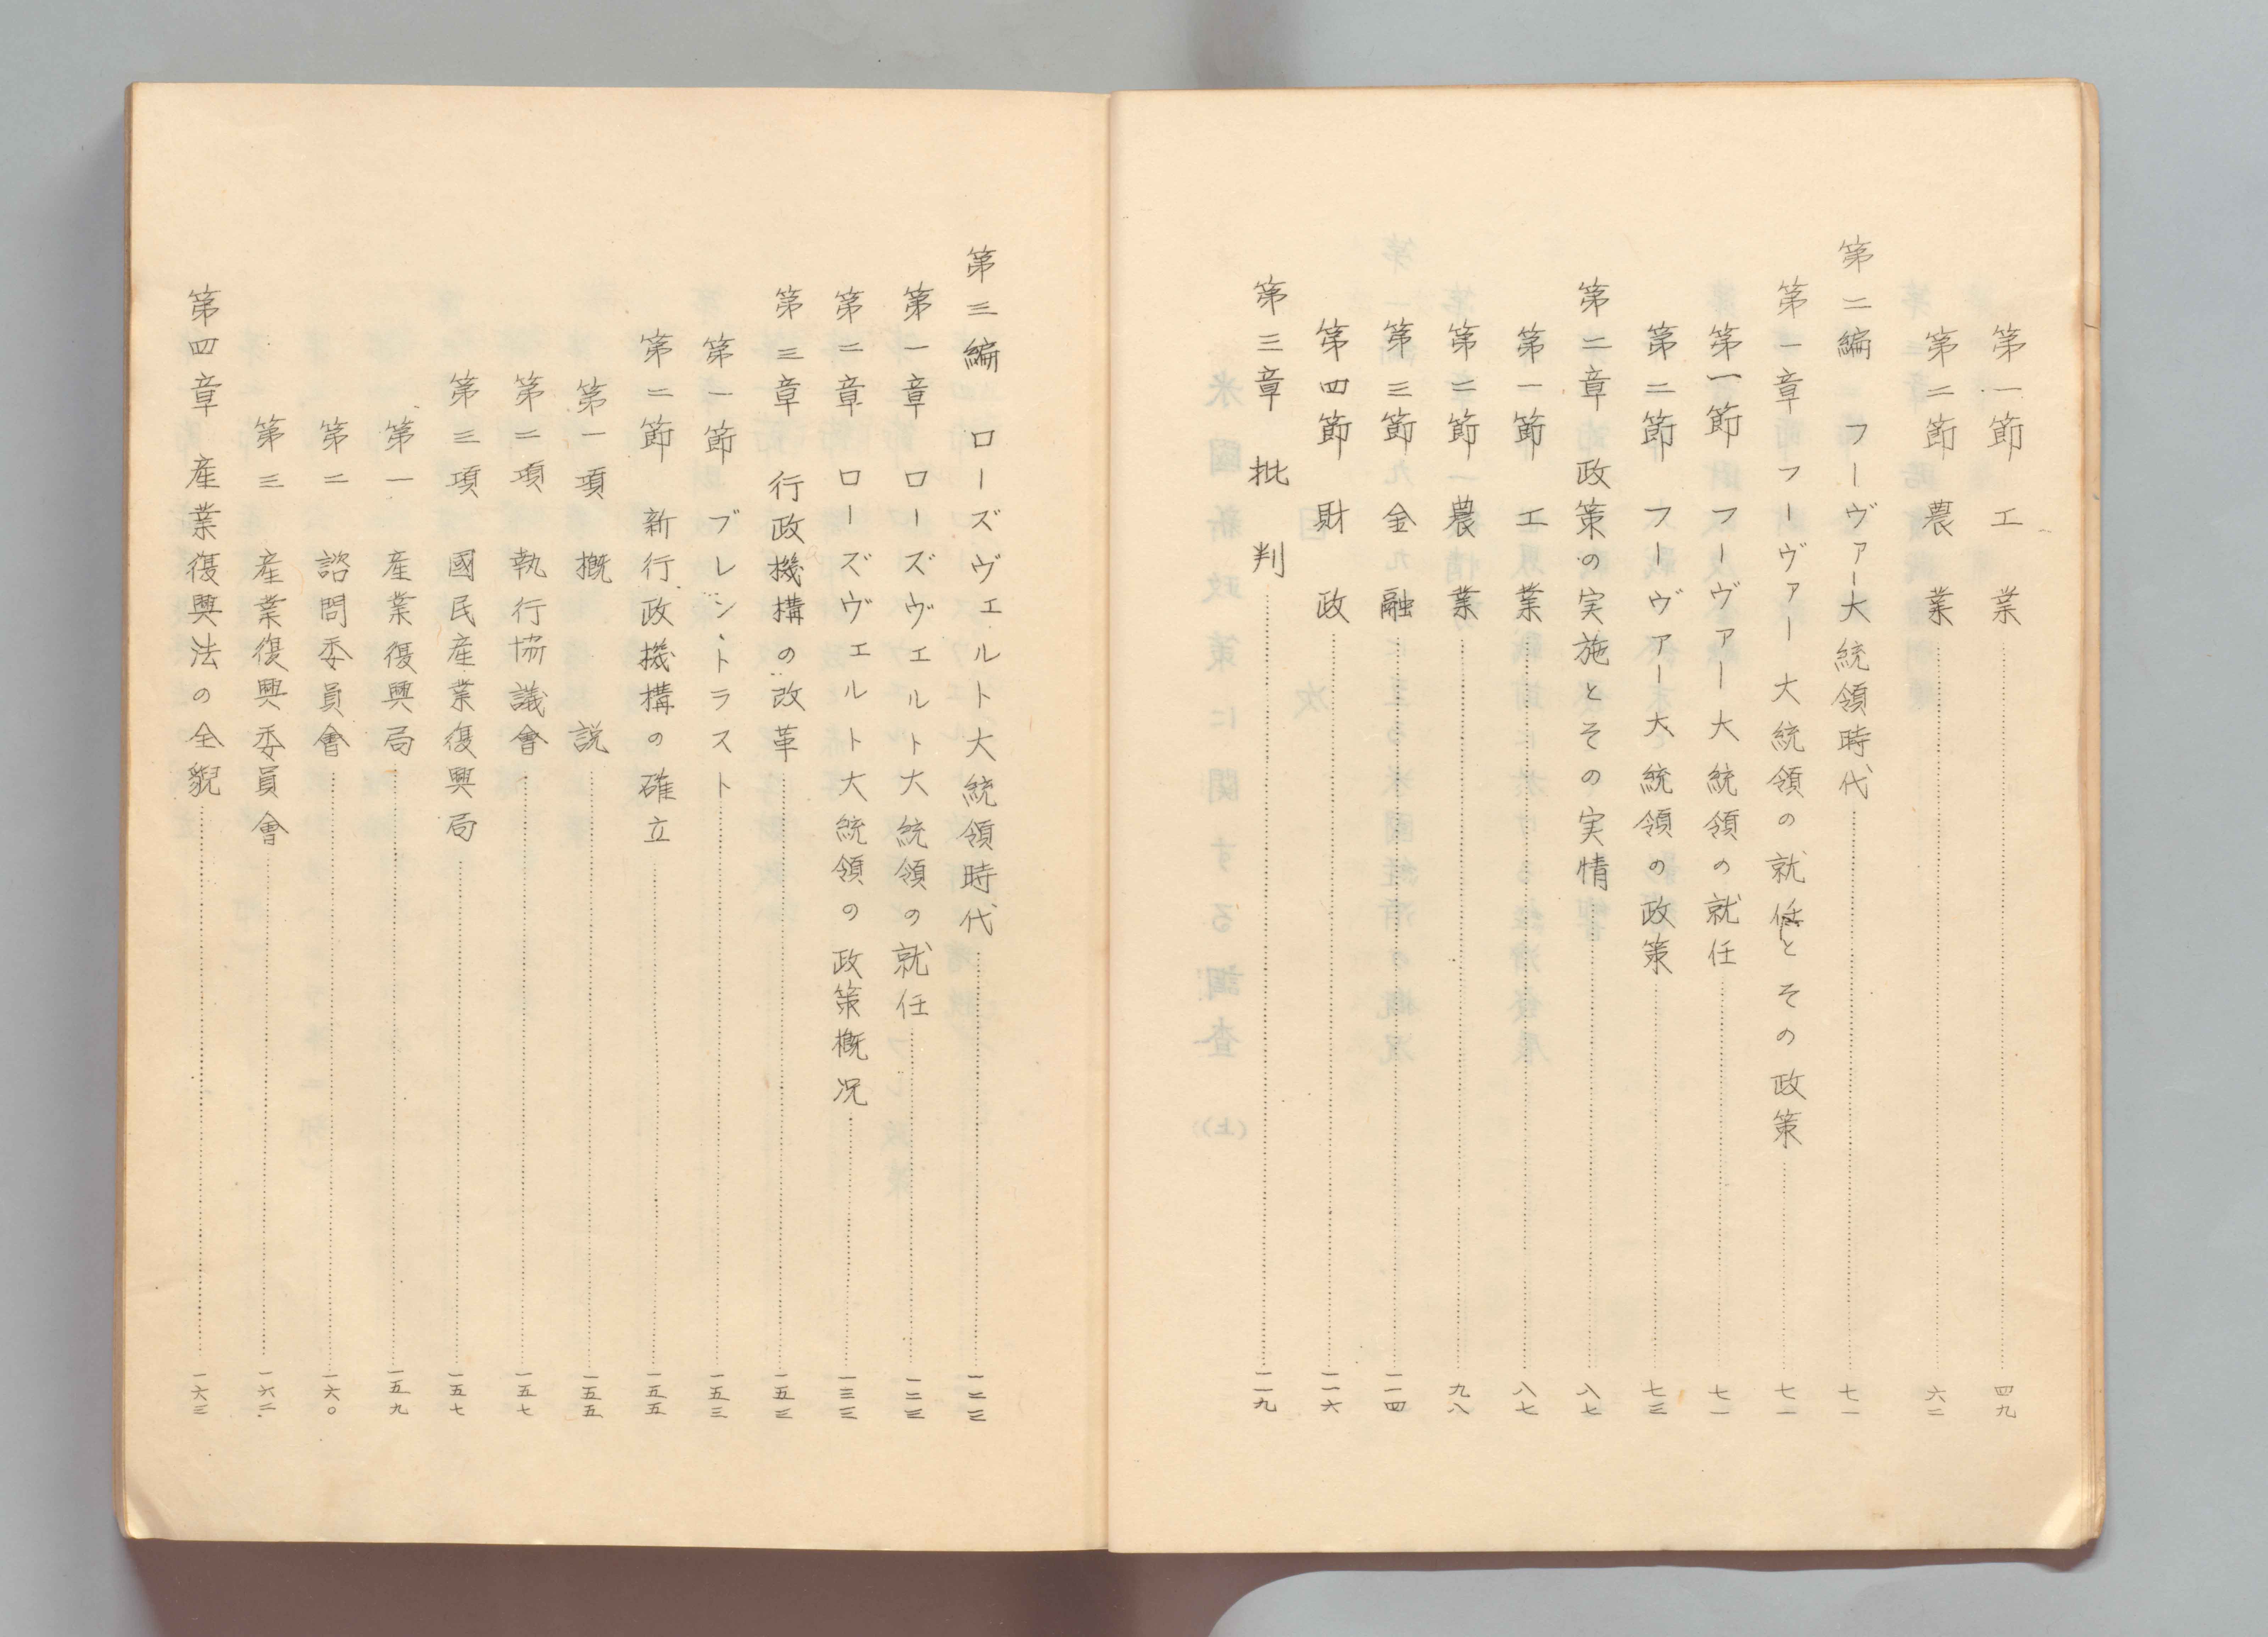 第一節　工業……四九
第二節　農業……六二
第二編　フーヴァー大統領時代……七一
第一章　フーヴァー大統領の就任とその政策……七一
第一節　フーヴァー大統領の就任……七一
第二節　フーヴァー大統領の政策……七三
第二章　政策の実施とその実情……八七
第一節　工業……八七
第二節　農業……九八
第三節　金融……一一四
第四節　財政……一一六
第三章　批判……一一九
第三編　ローズヴェルト大統領時代……一二三
第一章　ローズヴェルト大統領の就任……一二三
第二章　ローズヴェルト大統領の政策概況……一三三
第三章　行政機構の改革……一五三
第一節　ブレン、トラスト……一五三
第二節　新行政機構の確立……一五五
第一項　概説……一五五
第二項　執行協議會……一五七
第三項　國民産業復興局……一五七
第一　産業復興局……一五九
第二　諮問委員會……一六〇
第三　産業復興委員會……一六二
第四章　産業復興法の全貌……一六三